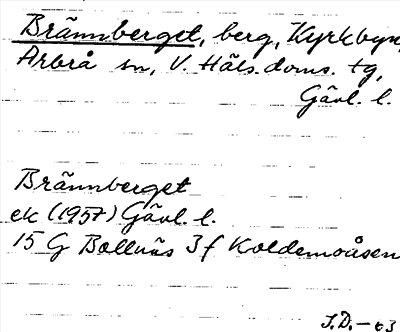 Brännberget, berg, Kyrkbyn,
Arbrå sn, V. Häls. doms. tg,
Gävl. l.
Brännberget
ek (1957) Gävl. l.
15 G Bollnäs 3f Koldemoåsen
J.D.-63